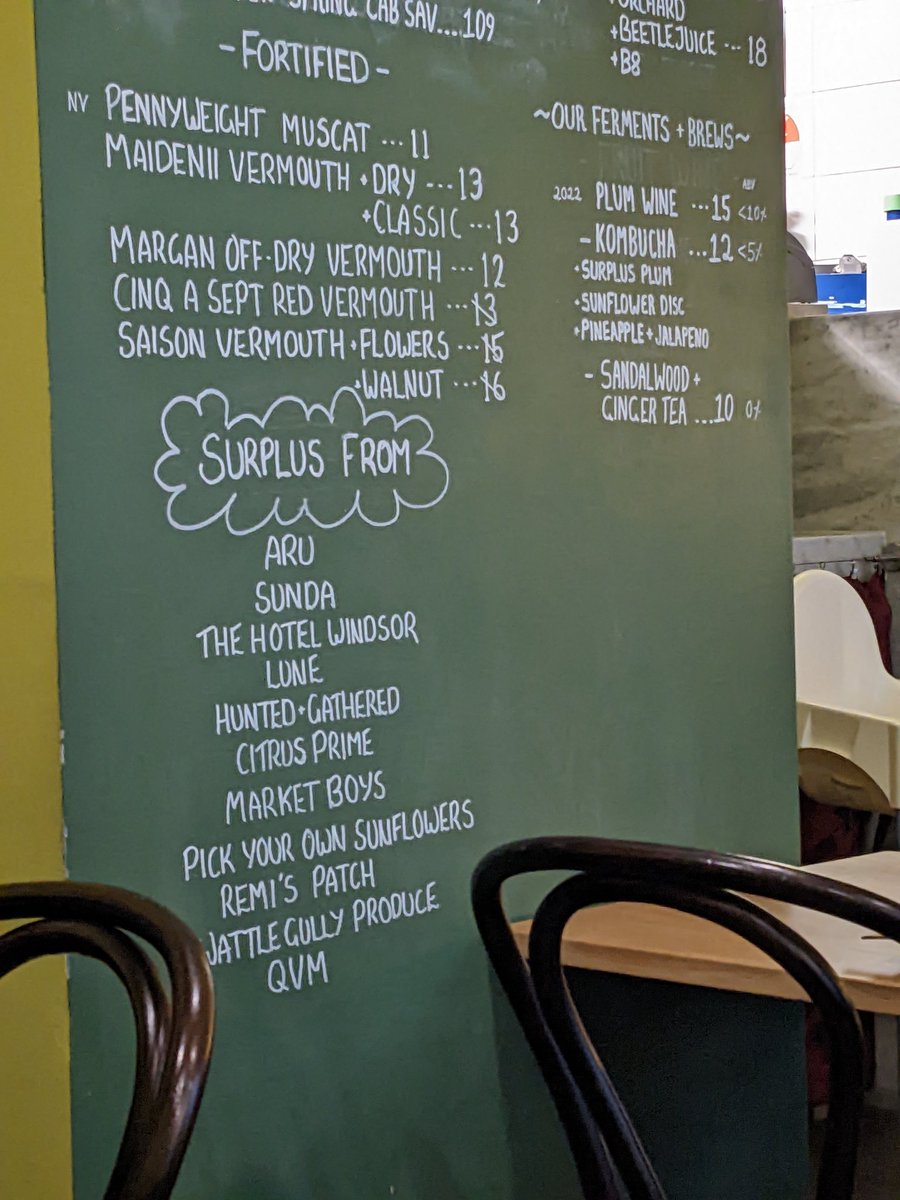 SPRING CAB SAV....109
-FORTIFIED-
NV PENNYWEIGHT MUSCAT ...11
MAIDENII VERMOUTH +DRY ...13
+CLASSIC ...13
MARGAN OFF-DRY VERMOUTH ...12
CINQ A SEPT RED VERMOUTH ...13
SAISON VERMOUTH +FLOWERS ...15
+WALNUT ...16
SURPLUS FROM
ARU
SUNDA
THE HOTEL WINDSOR
LUNE
HUNTED+GATHERED
CITRUS PRIME
MARKET BOYS
PICK YOUR OWN SUNFLOWERS
REMI'S PATCH
WATTLE GULLY PRODUCE
QVM
ORCHARD
+BEETLEJUICE ...18
+B8
~OUR FERMENTS + BREWS~
ABV
2022 PLUM WINE ...15 <10%
-KOMBUCHA ...12 <5%
+SURPLUS PLUM
+SUNFLOWER DISC
+PINEAPPLE+JALAPENO
- SANDALWOOD +
GINGER TEA ...10 0%